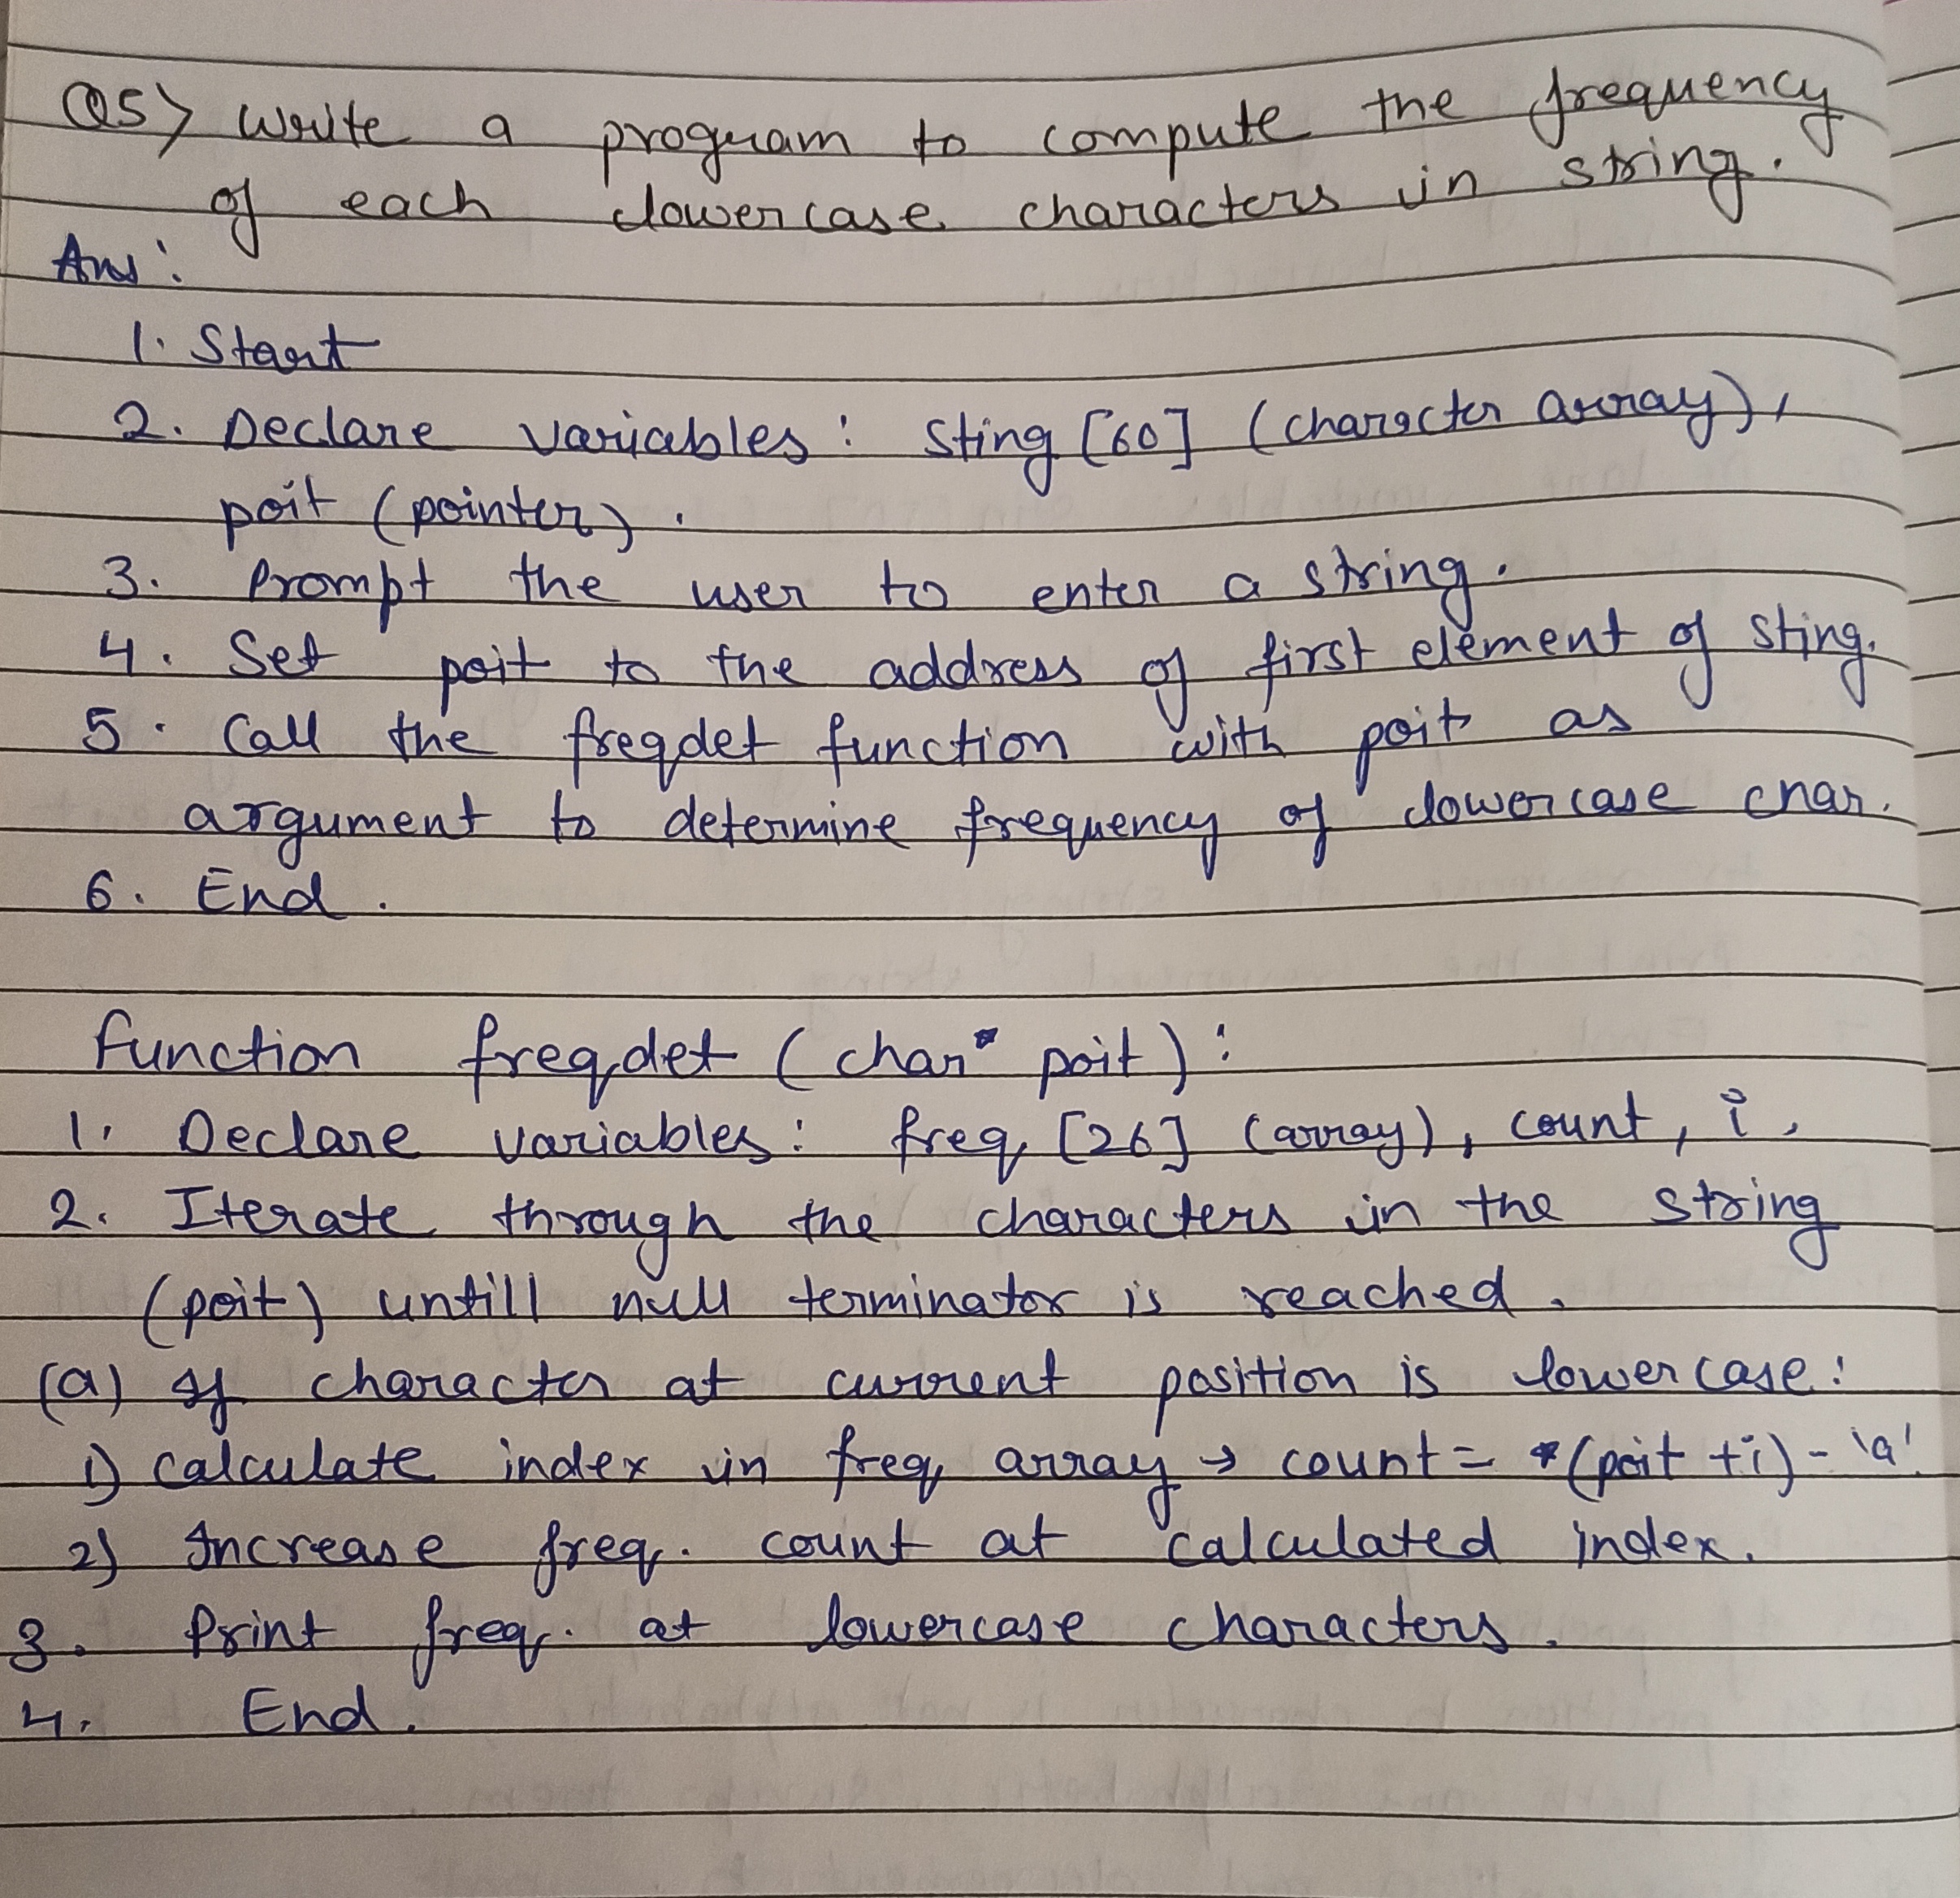 Q5> Write a program to compute the frequency
of each lowercase characters in string.
Ans:
1. Start
2. Declare variables : sting [60] (character array),
poit (pointer).
3. Prompt the user to enter a string.
4. Set poit to the address of first element of sting.
5. Call the freqdet function with poit as
argument to determine frequency of lowercase char.
6. End.
function freqdet (char* poit) :
1. Declare variables: freq [26] (array), count, i,
2. Iterate through the characters in the string
(poit) untill null terminator is reached.
(a) If character at current position is lowercase:
1) calculate index in freq array → count = *(poit +i) - 'a'.
2) Increase freq. count at calculated index.
3. Print freq. at lowercase characters.
4. End.